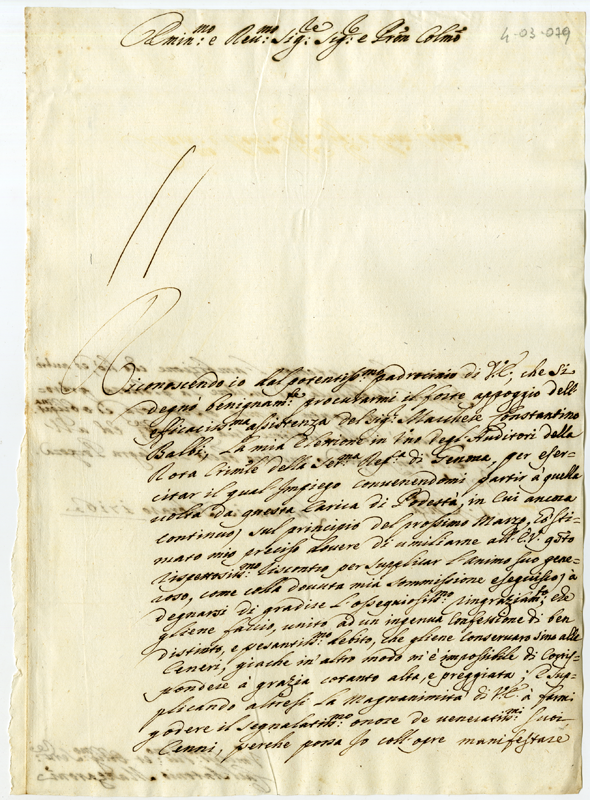 4-03-079
Emin:mo e Reu:mo Sig:re Sig:re e Pron Colmo
Riconoscendo io dal potentiss:mo padrocinio di V:E:, che si
degnò benignam:te procurarmi il forte appoggio dell'
efficaciss:ma assistenza del Sig:r Marchese Constantino
Balbi, la mia Elettione in uno degl'Auditori della
Rota Crim:le della Ser:ma Rep:ca di Genoua, per eser-
citar il qual Impiego conuenendomi partir à quella
uolta da questa Carica di Podestà, in cui ancora
continuo, sul principio del prossimo Marzo, hò sti-
mato mio preciso douere di umiliarne all'E.V: q:sto
rispettosiss:mo riscontro per supplicar l'animo suo gene-
roso, come colla douuta mia sommissione eseguisco, à
degnarsi di gradire l'ossequiosiss:mo ringraziam:to, che
gliene faccio, unito ad un ingenua Confessione di ben
distinto, e pesantiss:mo debito, che gliene conseruarò sino alle
Ceneri, giache in altro modo m'è impossibile di Corris-
pondere à grazia cotanto alta, e preggiata; E sup-
plicando altresi la Magnanimità di V:E: à farmi
godere il segnalatiss:mo onore de ueneratiss:mi suoi
Cenni, perche possa Io coll'opre manifestare